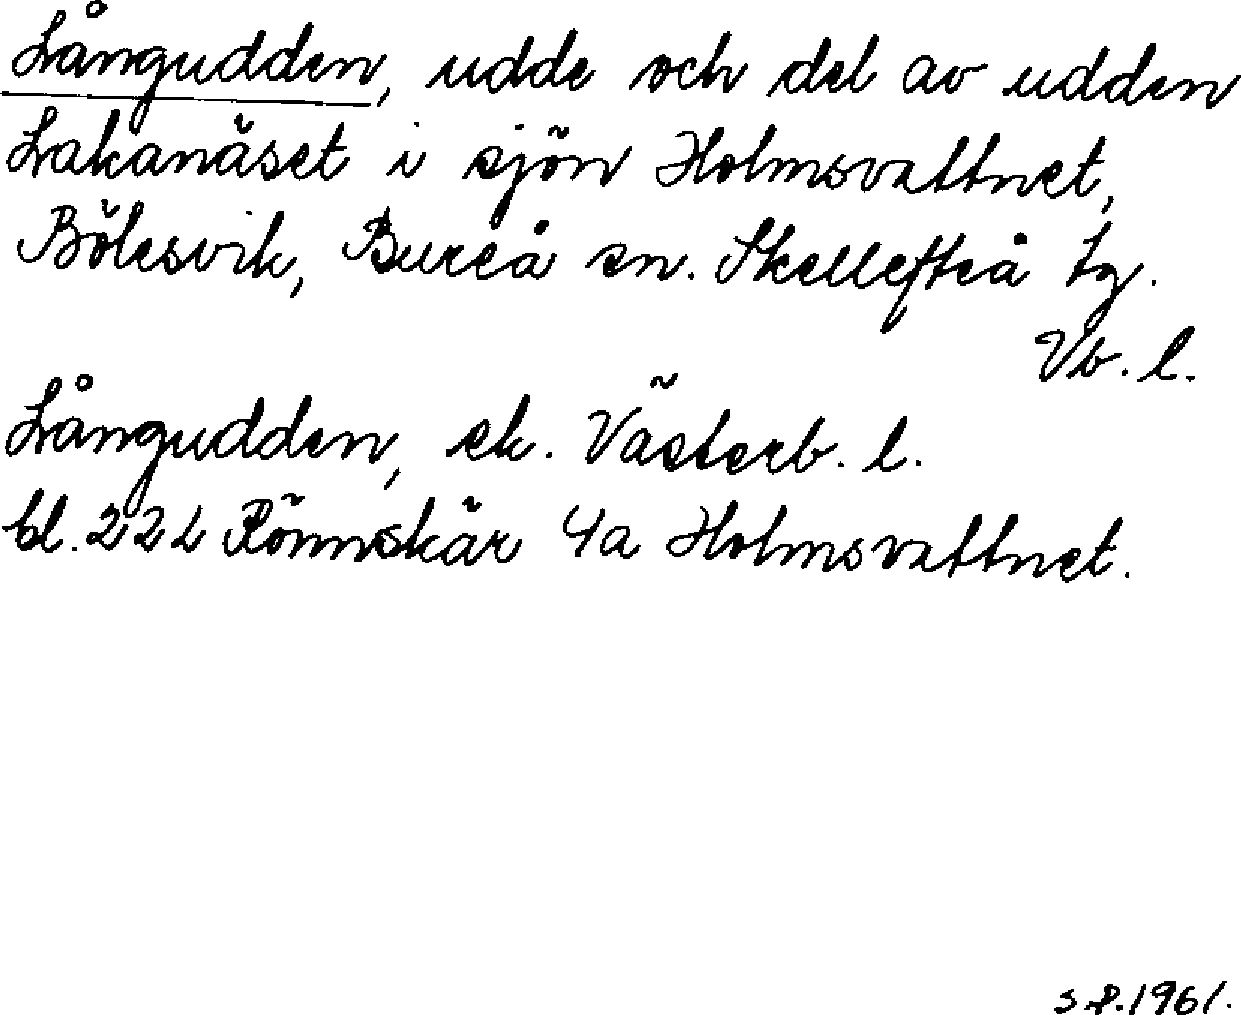 Långudden, udde och del av udden
Lakanäset i sjön Holmsvattnet,
Bölesvik, Bureå sn. Skellefteå tg.
Vb. l.
Långudden, ek. Västerb. l.
bl. 22L Rönnskär 4a Holmsvattnet.
S.P. 1961.